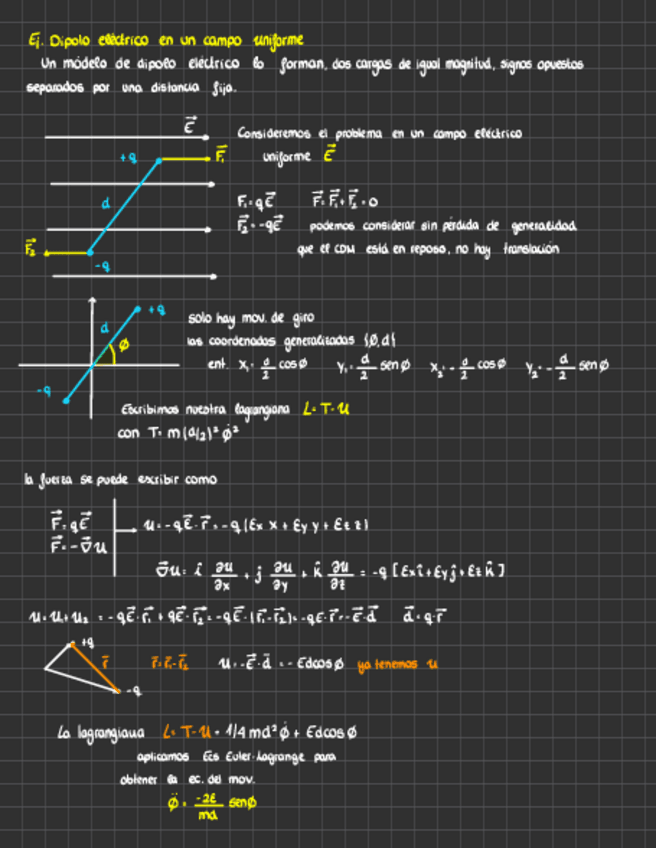 Ej. Dipolo eléctrico en un campo uniforme
Un modelo de dipolo eléctrico lo forman, dos cargas de igual magnitud, signos opuestos
separados por una distancia fija.
E⃗
Consideremos el problema en un campo eléctrico
+q F⃗₁ uniforme E⃗
d F₁=qE⃗ F⃗=F⃗₁+F⃗₂=0
F⃗₂=-qE⃗ podemos considerar sin pérdida de generalidad
F⃗₂ que el CDM está en reposo, no hay translación
-q
+q solo hay mov. de giro
d
ϕ las coordenadas generalizadas {ϕ,d}
ent. x₁=d/2 cosϕ y₁=d/2 senϕ x₂=-d/2 cosϕ y₂=-d/2 senϕ
-q
Escribimos nuestra lagrangiana L=T-U
con T=m(d/2)² ϕ̇²
la fuerza se puede escribir como
F⃗=qE⃗ U=-qE⃗·r⃗=-q(Ex x+Ey y+Ez z)
F⃗=-∇⃗U
∇⃗U=î ∂U/∂x + ĵ ∂U/∂y + k̂ ∂U/∂z = -q[Exî+Eyĵ+Ezk̂]
U=U₁+U₂ =-qE⃗·r⃗₁+qE⃗·r⃗₂=-qE⃗·(r⃗₁-r⃗₂)=-qE·r⃗=-E⃗·d⃗ d⃗=q·r⃗
+q
r⃗ r⃗=r⃗₁-r⃗₂ U=-E⃗·d⃗=-Edcosϕ ya tenemos U
-q
La lagrangiana L=T-U=1/4 md²ϕ̇+Edcosϕ
aplicamos Ecs Euler-Lagrange para
obtener la ec. del mov.
ϕ̈=-2E/md senϕ